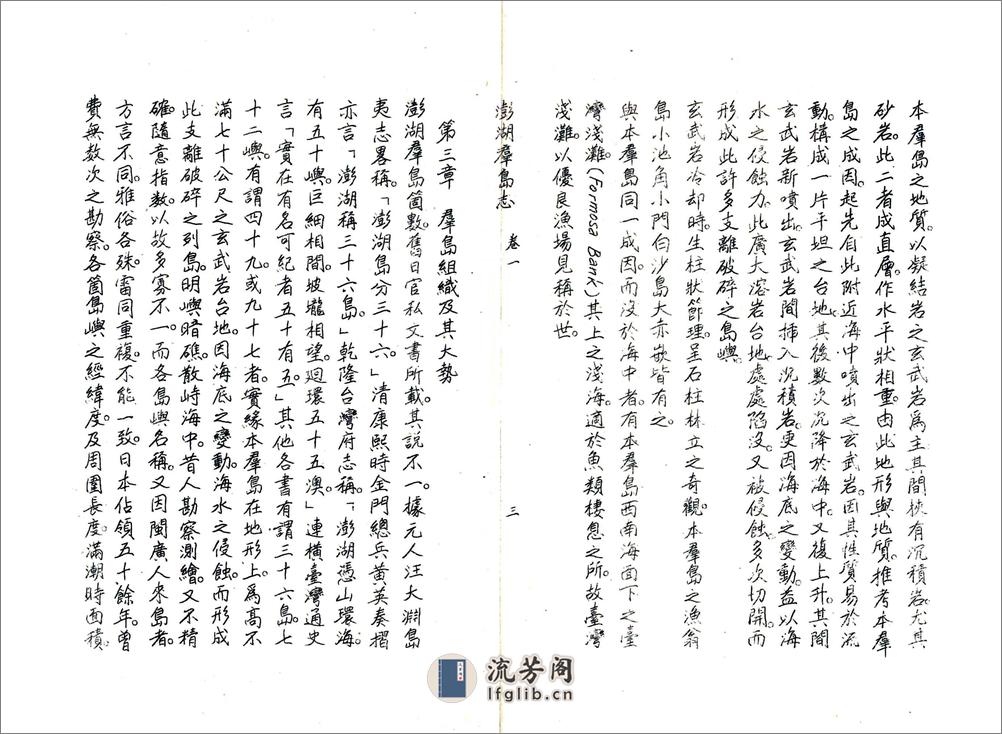 本羣島之地質。以凝結岩之玄武岩爲主其間挾有沉積岩。尤其
砂岩。此二者成直層。作水平狀相重。由此地形與地質。推考本羣
島之成因。起先自此附近海中噴出之玄武岩。因其性質易於流
動。構成一片平坦之台地。其後數次沉降於海中。又復上升。其間
玄武岩新噴出。玄武岩間揷入沉積岩。更因海底之變動。益以海
水之侵蝕力。此廣大溶岩台地。處處陷沒。又被侵蝕。多次切開而
形成此許多支離破碎之島嶼。
玄武岩冷却時。生柱狀節理。呈石柱林立之奇觀。本羣島之漁翁
島小池角小門白沙島大赤嵌皆有之。
與本羣島同一成因。而沒於海中者。有本羣島西南海面下之臺
灣淺灘。(Formosa Bank)其上之淺海。適於魚類棲息之所。故臺灣
淺灘。以優良漁場見稱於世。
澎湖羣島志 卷一 三
第三章 羣島組織及其大勢
澎湖羣島箇數。舊日官私文書所載。其說不一。據元人汪大淵島
夷志畧稱。「澎湖島分三十六。」清康熙時金門總兵黃英奏摺
亦言「澎湖稱三十六島。」乾隆台灣府志稱。「澎湖憑山環海。
有五十嶼。巨細相間。坡壠相望。廻環五十五澳。」連橫臺灣通史
言「實在有名可紀者五十有五。」其他各書有謂三十六島。七
十二嶼。有謂四十九。或九十七者。實緣本羣島在地形上。爲高不
滿七十公尺之玄武岩台地。因海底之變動。海水之侵蝕。而形成
此支離破碎之列島。明嶼暗礁。散峙海中。昔人勘察測繪。又不精
確。隨意指數。以故多寡不一。而各島嶼名稱。又因閩廣人來島者。
方言不同。雅俗各殊。雷同重複。不能一致。日本佔領五十餘年。曾
費無數次之勘察。各箇島嶼之經緯度。及周圍長度。滿潮時面積。
流芳阁
lfglib.cn